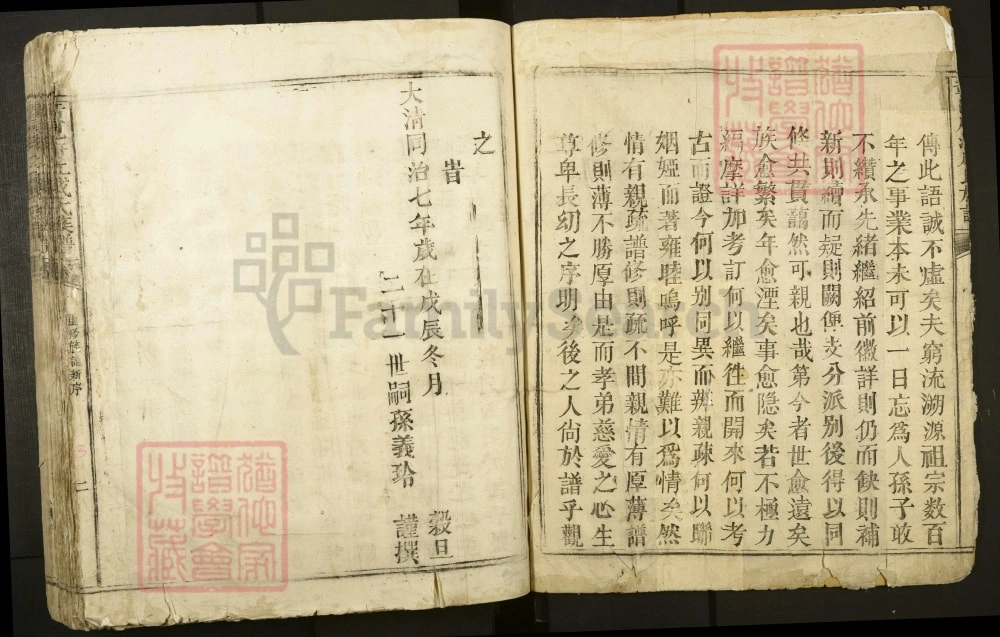 傳此語誠不虛矣夫窮流溯源祖宗数百
年之事業本末可以一日忘爲人孫子敢
不纘承先緒繼紹前徽詳則仍而缺則補
新則續而疑則闕俾支分派别後得以同
修共貫藹然可親也哉第今者世愈遠矣
族愈繁矣年愈湮矣事愈隐矣若不極力
綢摩詳加考訂何以繼徃而開來何以考
古而證今何以别同異而辨親疎何以聯
姻婭而著雍睦嗚呼是亦難以爲情矣然
情有親疏譜修則疏不間親情有厚薄譜
修則薄不勝厚由是而孝弟慈愛之心生
尊卑長幼之序明矣後之人尙於譜乎觀
之
旹
大清同治七年歲在戊辰冬月 穀旦
二十一世嗣孫義玲 謹撰
重修族譜新序
二
3
譜學會
特藏
譜學會
特藏
FamilySearch